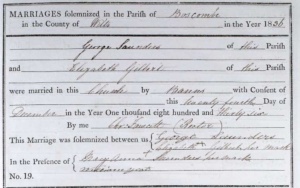 MARRIAGES solemnized in the Parish of Boscombe
in the County of Wilts in the Year 1836
George Saunders of this Parish
and Elizabeth Gilbert of this Parish
were married in this Church by Banns with Consent of
this twenty fourth Day of
December in the Year One thousand eight hundred and thirty six
By me (Rector)
This Marriage was solemnized between us George Saunders
Elizabeth Gilbert her mark
In the Presence of Saunders her mark
No. 19.